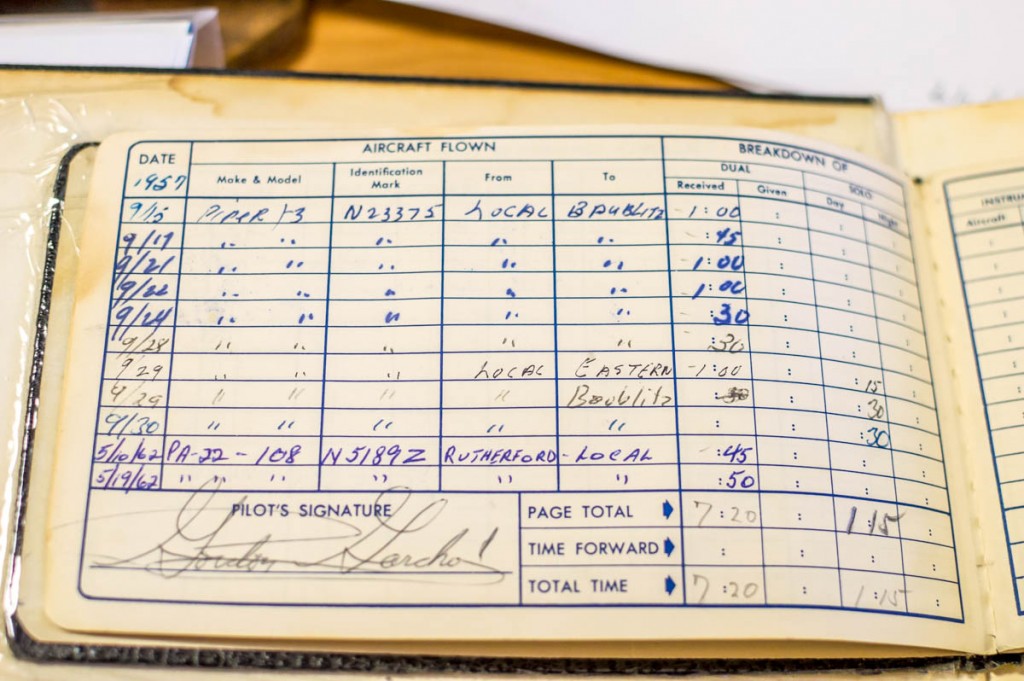 DATE AIRCRAFT FLOWN BREAKDOWN OF
1957 Make & Model Identification Mark From To DUAL SOLO
Received Given Day Night
9/15 PIPER J3 N23375 LOCAL BAUBLITZ 1:00 :
9/17 " " " " " :45 : :
9/21 " " " " " 1:00 : :
9/22 " " " " " 1:00 : :
9/24 " " " " " :30 : :
9/28 " " " " " :30 : :
9/29 " " " LOCAL EASTERN 1:00 : :15
9/29 " " " " Baublitz : :30
9/30 " " " " " : : :30
5/10/62 PA-22-108 N5189Z RUTHERFORD - LOCAL :45 : :
5/19/62 " " " " " :50 : :
PILOT'S SIGNATURE PAGE TOTAL 7:20 : 1:15 :
Gordon TIME FORWARD : : : :
TOTAL TIME 7:20 : 1:15 :
Aircraft